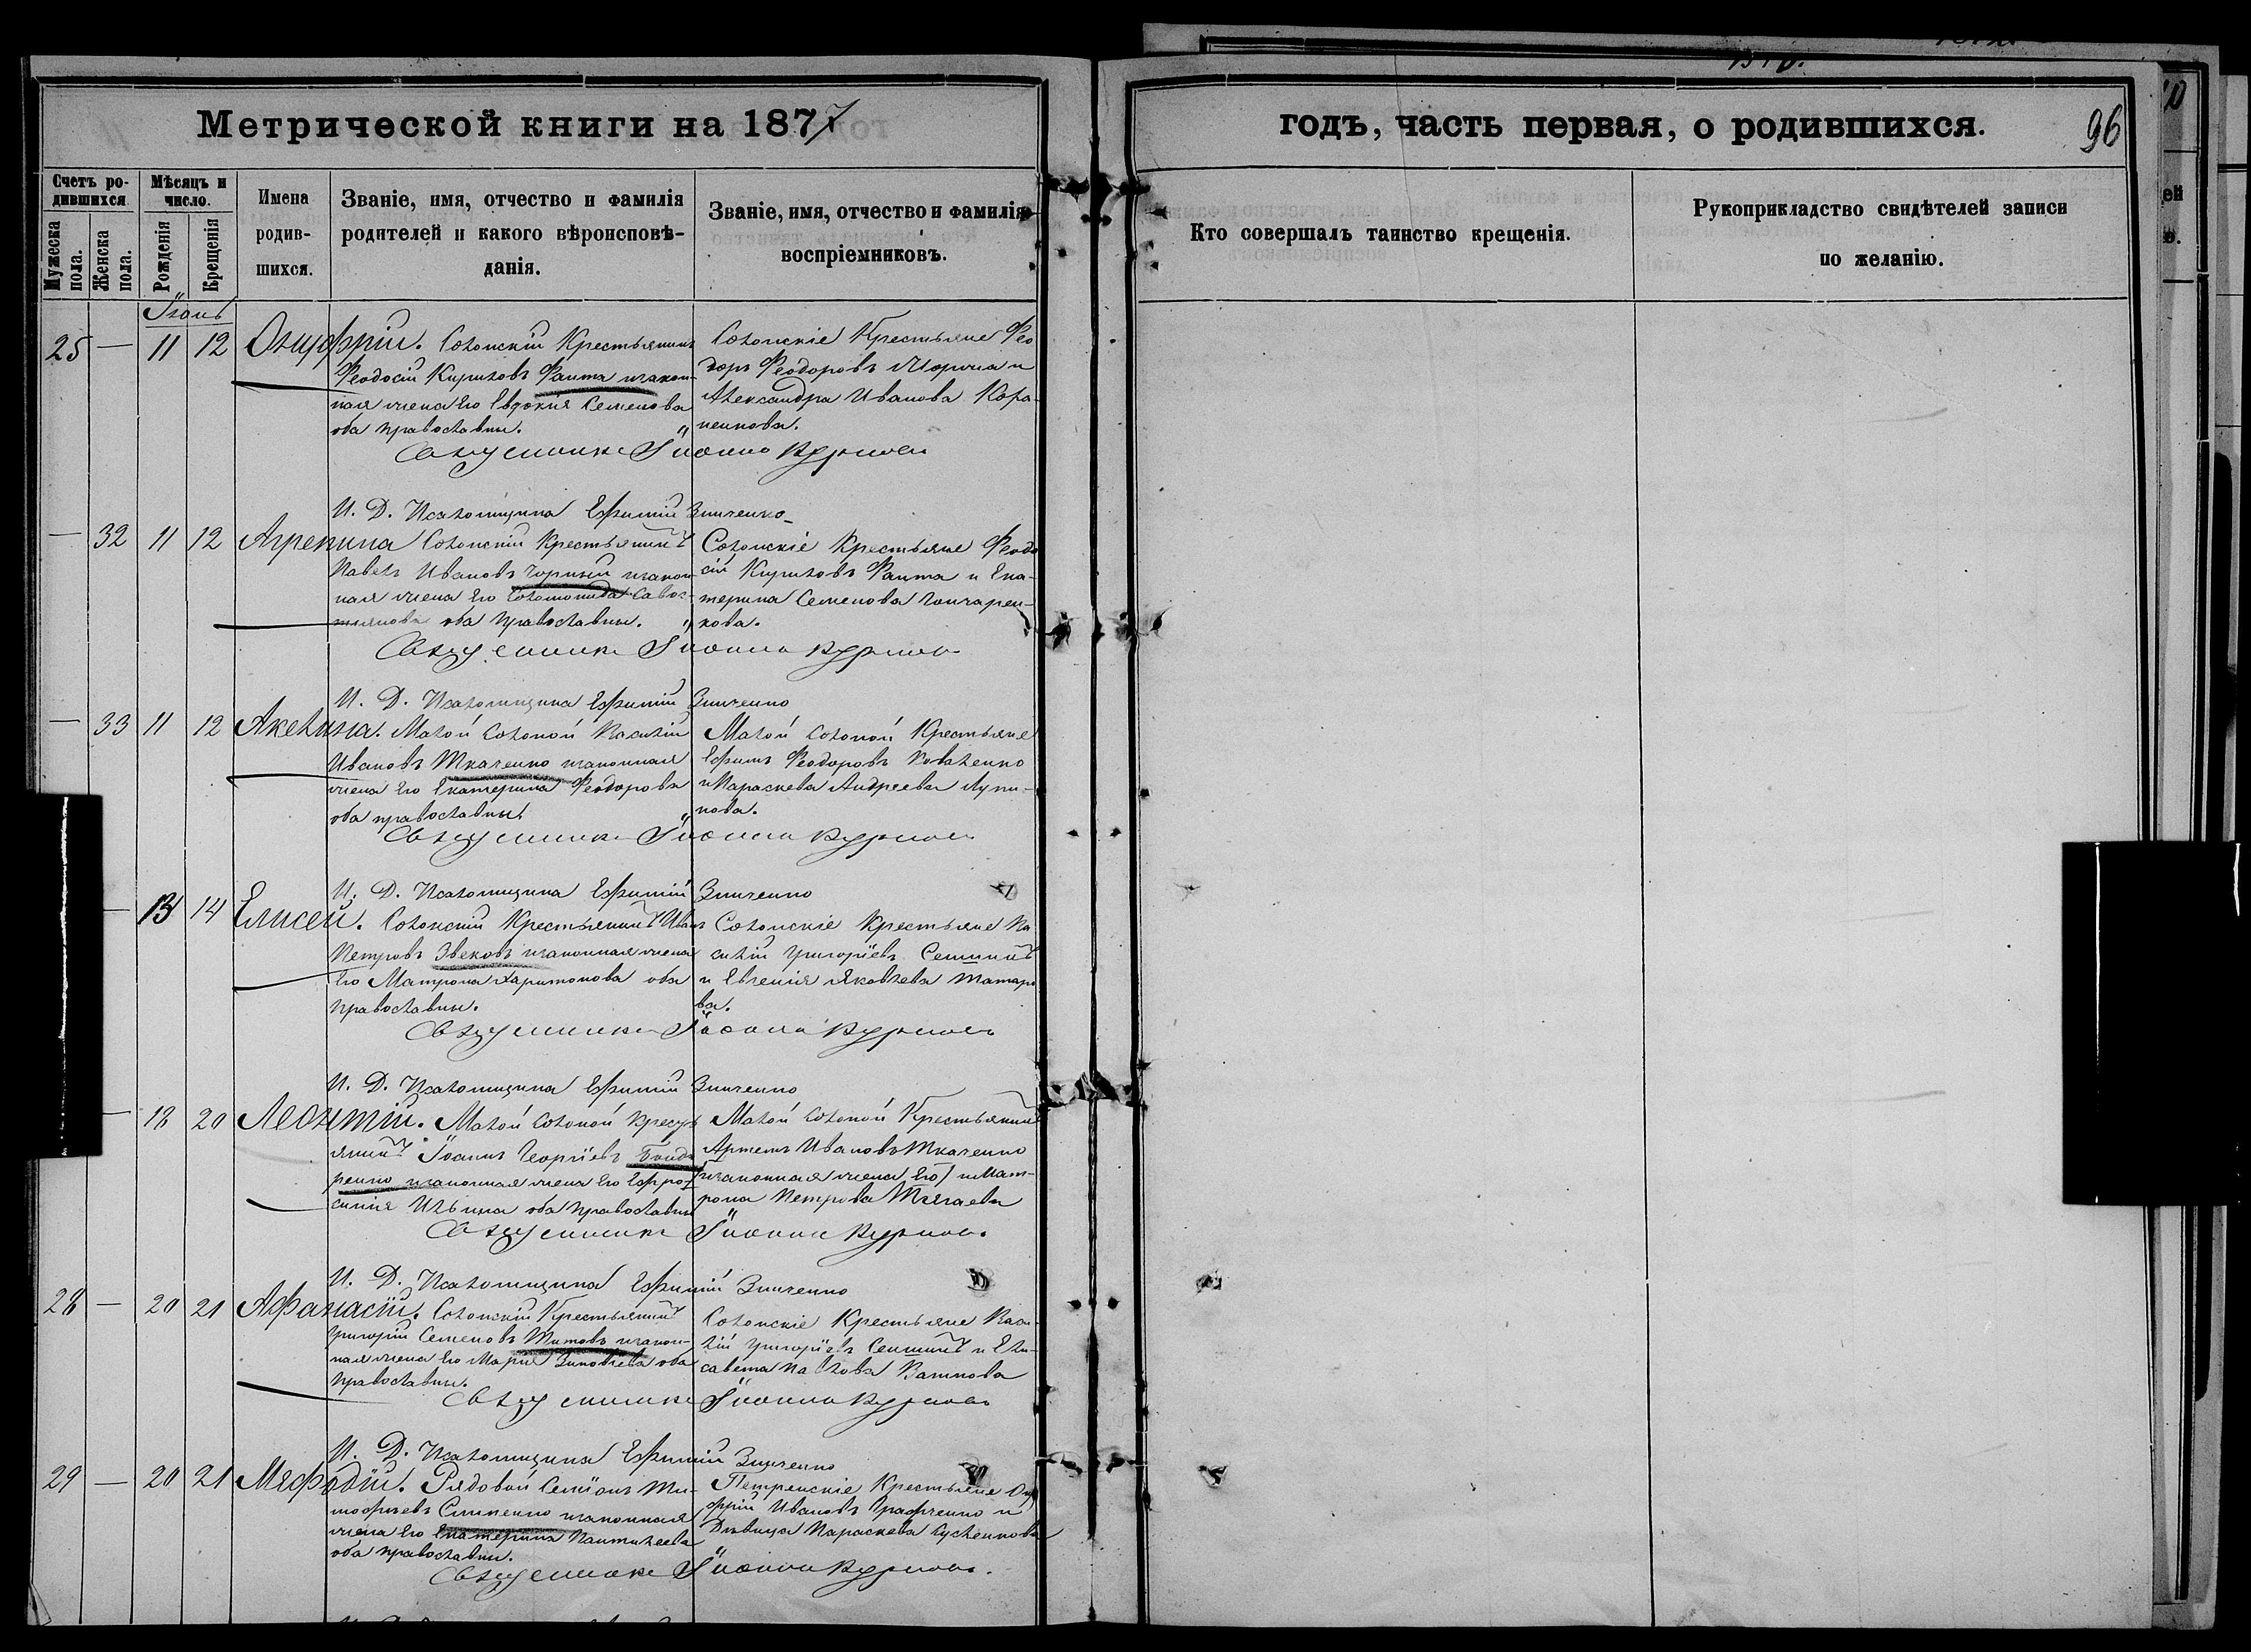 Метрической книги на 1877
годъ, часть первая, о родившихся.
96
Счетъ ро-
дившихся
Мужеска
пола.
Женска
пола.
Мѣсяцъ и
число.
Рожденія
Крещенія
Имена
родив-
шихся.
Званіе, имя, отчество и фамилія
родителей и какого вѣроисповѣ-
данія.
Званіе, имя, отчество и фамилія
воспріемниковъ.
Кто совершалъ таинство крещенія.
Рукоприкладство свидѣтелей записи
по желанію.
Іюнь
25 — 11 12 Онуфрій. Солонскій Крестьянинъ
Феодосій Кириловъ Фаита изакон-
ная жена Его Евдокія Семенова
оба православны.
Солонскіе Крестьяне Фео
доръ Феодоровъ и
Александра Иванова
Священникъ Іоаннъ
И. Д. Псаломщика Ефимій Зинченко
— 32 11 12 Агрепина Солонскій Крестьянинъ
Павелъ Ивановъ Чорный изакон-
ная жена Его Соломонида Савос-
тьянова оба православны.
Солонскіе Крестьяне Феодо
сій Кириловъ Фаита и Ека-
терина Семенова Гончарен-
кова.
Священникъ Іоаннъ
И. Д. Псаломщика Ефимій Зинченко
— 33 11 12 Акелина. Малой Солоной Василій
Ивановъ Ткаченко изаконная
жена Его Екатерина Феодорова
оба православны.
Малой Солоной Крестьяне
Ефимъ Феодоровъ Коваленко
и Параскева Андреева
нова.
Священникъ Іоаннъ
И. Д. Псаломщика Ефимій Зинченко
— 13 14 Елисей. Солонскій Крестьянинъ Иванъ
Петровъ Звековъ изаконная жена
Его Матрона Харитонова оба
православны.
Солонскіе Крестьяне Ва
силій Григоріевъ Сешинъ
и Евгенія Яковлева Татаро
ва.
Священникъ Іоаннъ
И. Д. Псаломщика Ефимій Зинченко
— 18 20 Леонтій. Малой Солоной Кресть
янинъ Іоаннъ Георгіевъ Бонда
ренко изаконная жена Его Ефро-
синія Ильина оба православны
Малой Солоной Крестьянинъ
Артемъ Ивановъ Ткаченко
изаконная жена Его и Мат-
рона Петрова
Священникъ Іоаннъ
И. Д. Псаломщика Ефимій Зинченко
28 — 20 21 Афанасій. Солонскій Крестьянинъ
Григорій Семеновъ Титовъ изакон-
ная жена Его Марія Зиновіева оба
православны.
Солонскіе Крестьяне Васи
лій Григоріевъ Сешинъ и Ели-
савета Павлова
Священникъ Іоаннъ
И. Д. Псаломщика Ефимій Зинченко
29 — 20 21 Мефодій. Рядовой Семіонъ Ти-
мофеевъ изаконная
жена Его Екатерина Пантилеева
оба православны.
Петренскіе Крестьяне Ону
фрій Ивановъ Графченко и
Дѣвица Параскева
Священникъ Іоаннъ